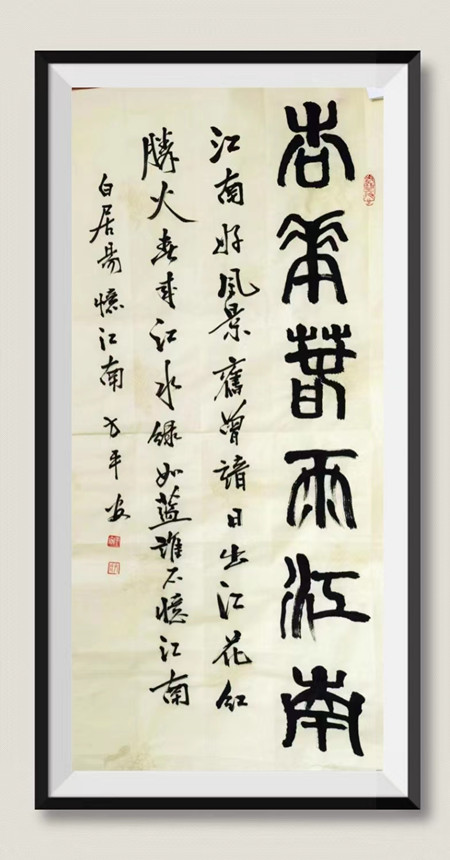 杏華春雨江南
江南好風景舊曾諳日出江花紅
勝火春來江水綠如藍誰不憶江南
白居易憶江南 平